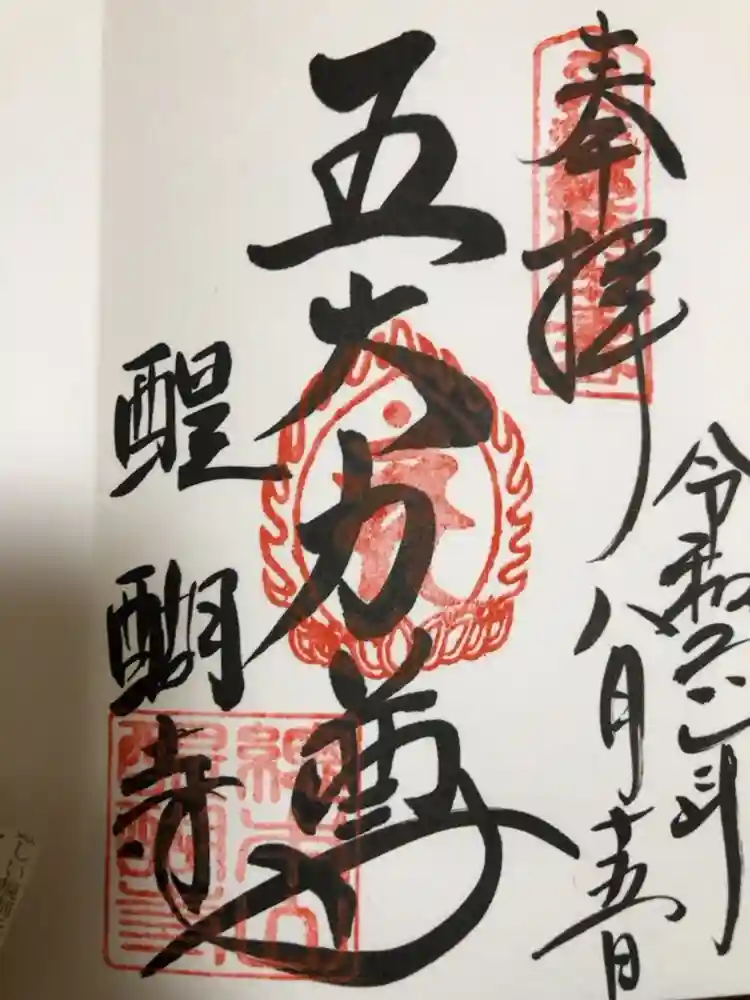 奉拝
令和二年
八月十五日
五大力尊
醍醐寺